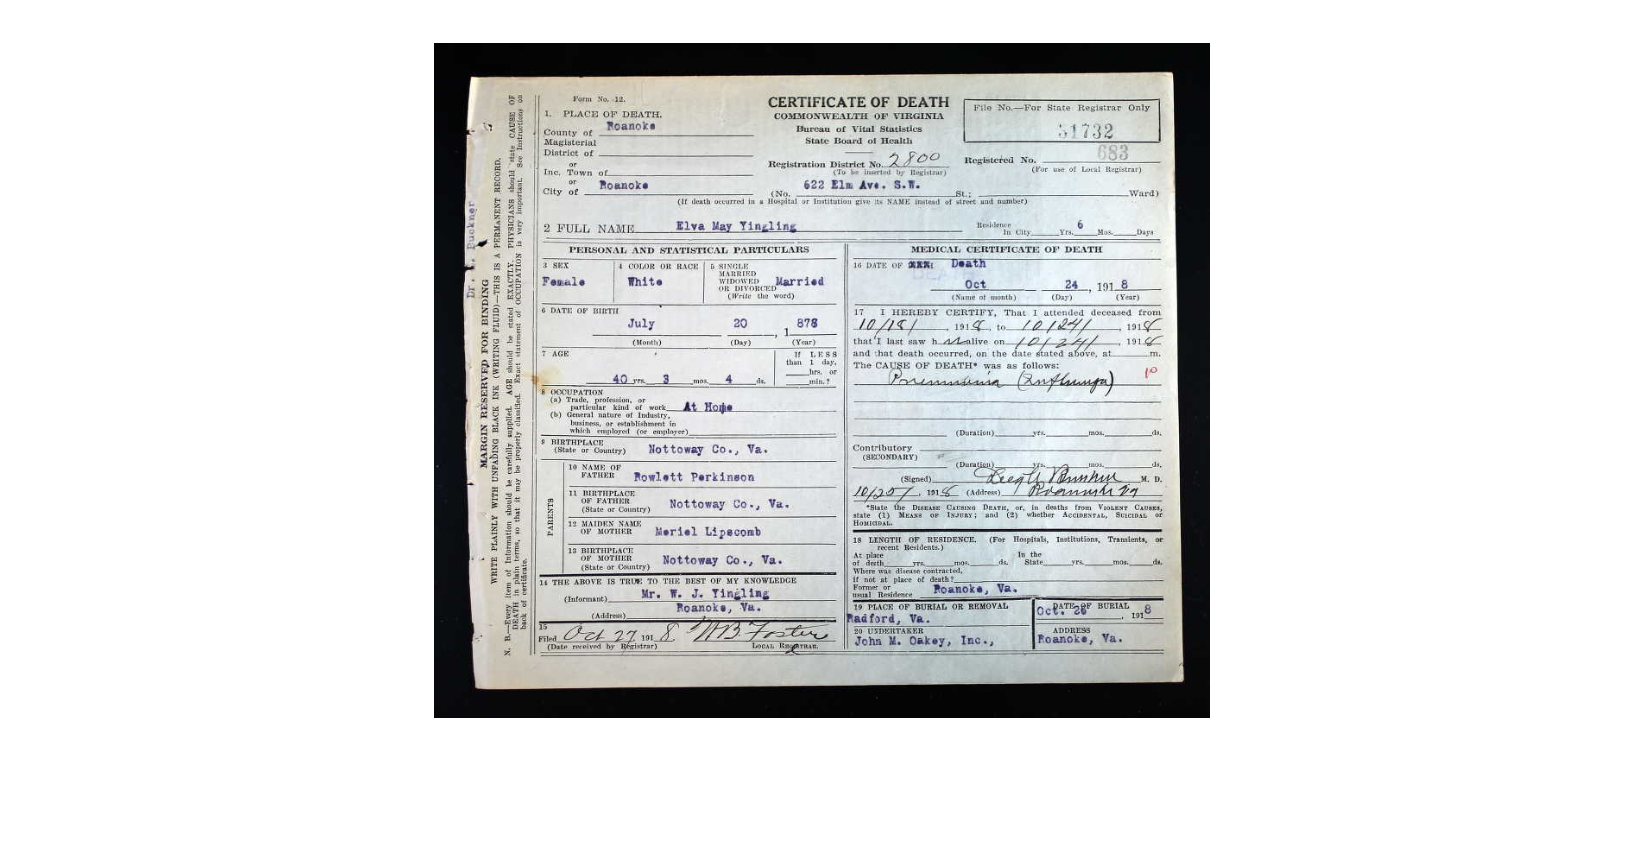 Form No. 12.
CERTIFICATE OF DEATH
COMMONWEALTH OF VIRGINIA
Bureau of Vital Statistics
State Board of Health
File No.—For State Registrar Only
31732
1. PLACE OF DEATH.
County of Roanoke
Magisterial
District of
or
Inc. Town of
or
City of Roanoke
Registration District No. 2800
(To be inserted by Registrar)
Registered No. 683
(For use of Local Registrar)
(No. 622 Elm Ave. S.W. St.; Ward)
(If death occurred in a Hospital or Institution give its NAME instead of street and number)
2 FULL NAME Elva May Yingling
Residence In City Yrs. 6 Mos. Days
PERSONAL AND STATISTICAL PARTICULARS
3 SEX
Female
4 COLOR OR RACE
White
5 SINGLE
MARRIED
WIDOWED
OR DIVORCED Married
(Write the word)
6 DATE OF BIRTH
July 20, 1878
(Month) (Day) (Year)
7 AGE
40 yrs. 3 mos. 4 ds.
If LESS
than 1 day,
hrs. or
min.?
8 OCCUPATION
(a) Trade, profession, or
particular kind of work At Home
(b) General nature of Industry,
business, or establishment in
which employed (or employer)
9 BIRTHPLACE
(State or Country) Nottoway Co., Va.
PARENTS
10 NAME OF
FATHER Rowlett Perkinson
11 BIRTHPLACE
OF FATHER
(State or Country) Nottoway Co., Va.
12 MAIDEN NAME
OF MOTHER Meriel Lipscomb
13 BIRTHPLACE
OF MOTHER
(State or Country) Nottoway Co., Va.
14 THE ABOVE IS TRUE TO THE BEST OF MY KNOWLEDGE
(Informant) Mr. W. J. Yingling
(Address) Roanoke, Va.
15
Filed Oct 27, 1918. W B Foster
(Date received by Registrar) LOCAL REGISTRAR.
MEDICAL CERTIFICATE OF DEATH
16 DATE OF Death
Oct 24, 1918
(Name of month) (Day) (Year)
17 I HEREBY CERTIFY, That I attended deceased from
10/18/, 1918, to 10/24/, 1918
that I last saw her alive on 10/24/, 1918
and that death occurred, on the date stated above, at m.
The CAUSE OF DEATH* was as follows:
10
Pneumonia (Influenza)
(Duration) yrs. mos. ds.
Contributory
(SECONDARY)
(Duration) yrs. mos. ds.
(Signed) M. D.
10/25/, 1918 (Address) Roanoke Va
*State the DISEASE CAUSING DEATH, or, in deaths from VIOLENT CAUSES,
state (1) MEANS OF INJURY; and (2) whether ACCIDENTAL, SUICIDAL or
HOMICIDAL.
18 LENGTH OF RESIDENCE. (For Hospitals, Institutions, Transients, or
recent Residents.)
At place
of death yrs. mos. ds. In the
State yrs. mos. ds.
Where was disease contracted,
if not at place of death?
Former or
usual Residence Roanoke, Va.
19 PLACE OF BURIAL OR REMOVAL
Radford, Va.
DATE OF BURIAL
Oct. 26, 1918
20 UNDERTAKER
John M. Oakey, Inc.,
ADDRESS
Roanoke, Va.
MARGIN RESERVED FOR BINDING
WRITE PLAINLY WITH UNFADING BLACK INK (WRITING FLUID)—THIS IS A PERMANENT RECORD.
N. B.—Every item of Information should be carefully supplied. AGE should be stated EXACTLY. PHYSICIANS should state CAUSE OF
DEATH in plain terms, so that it may be properly classified. Exact statement of OCCUPATION is very important. See Instructions on
back of certificate.